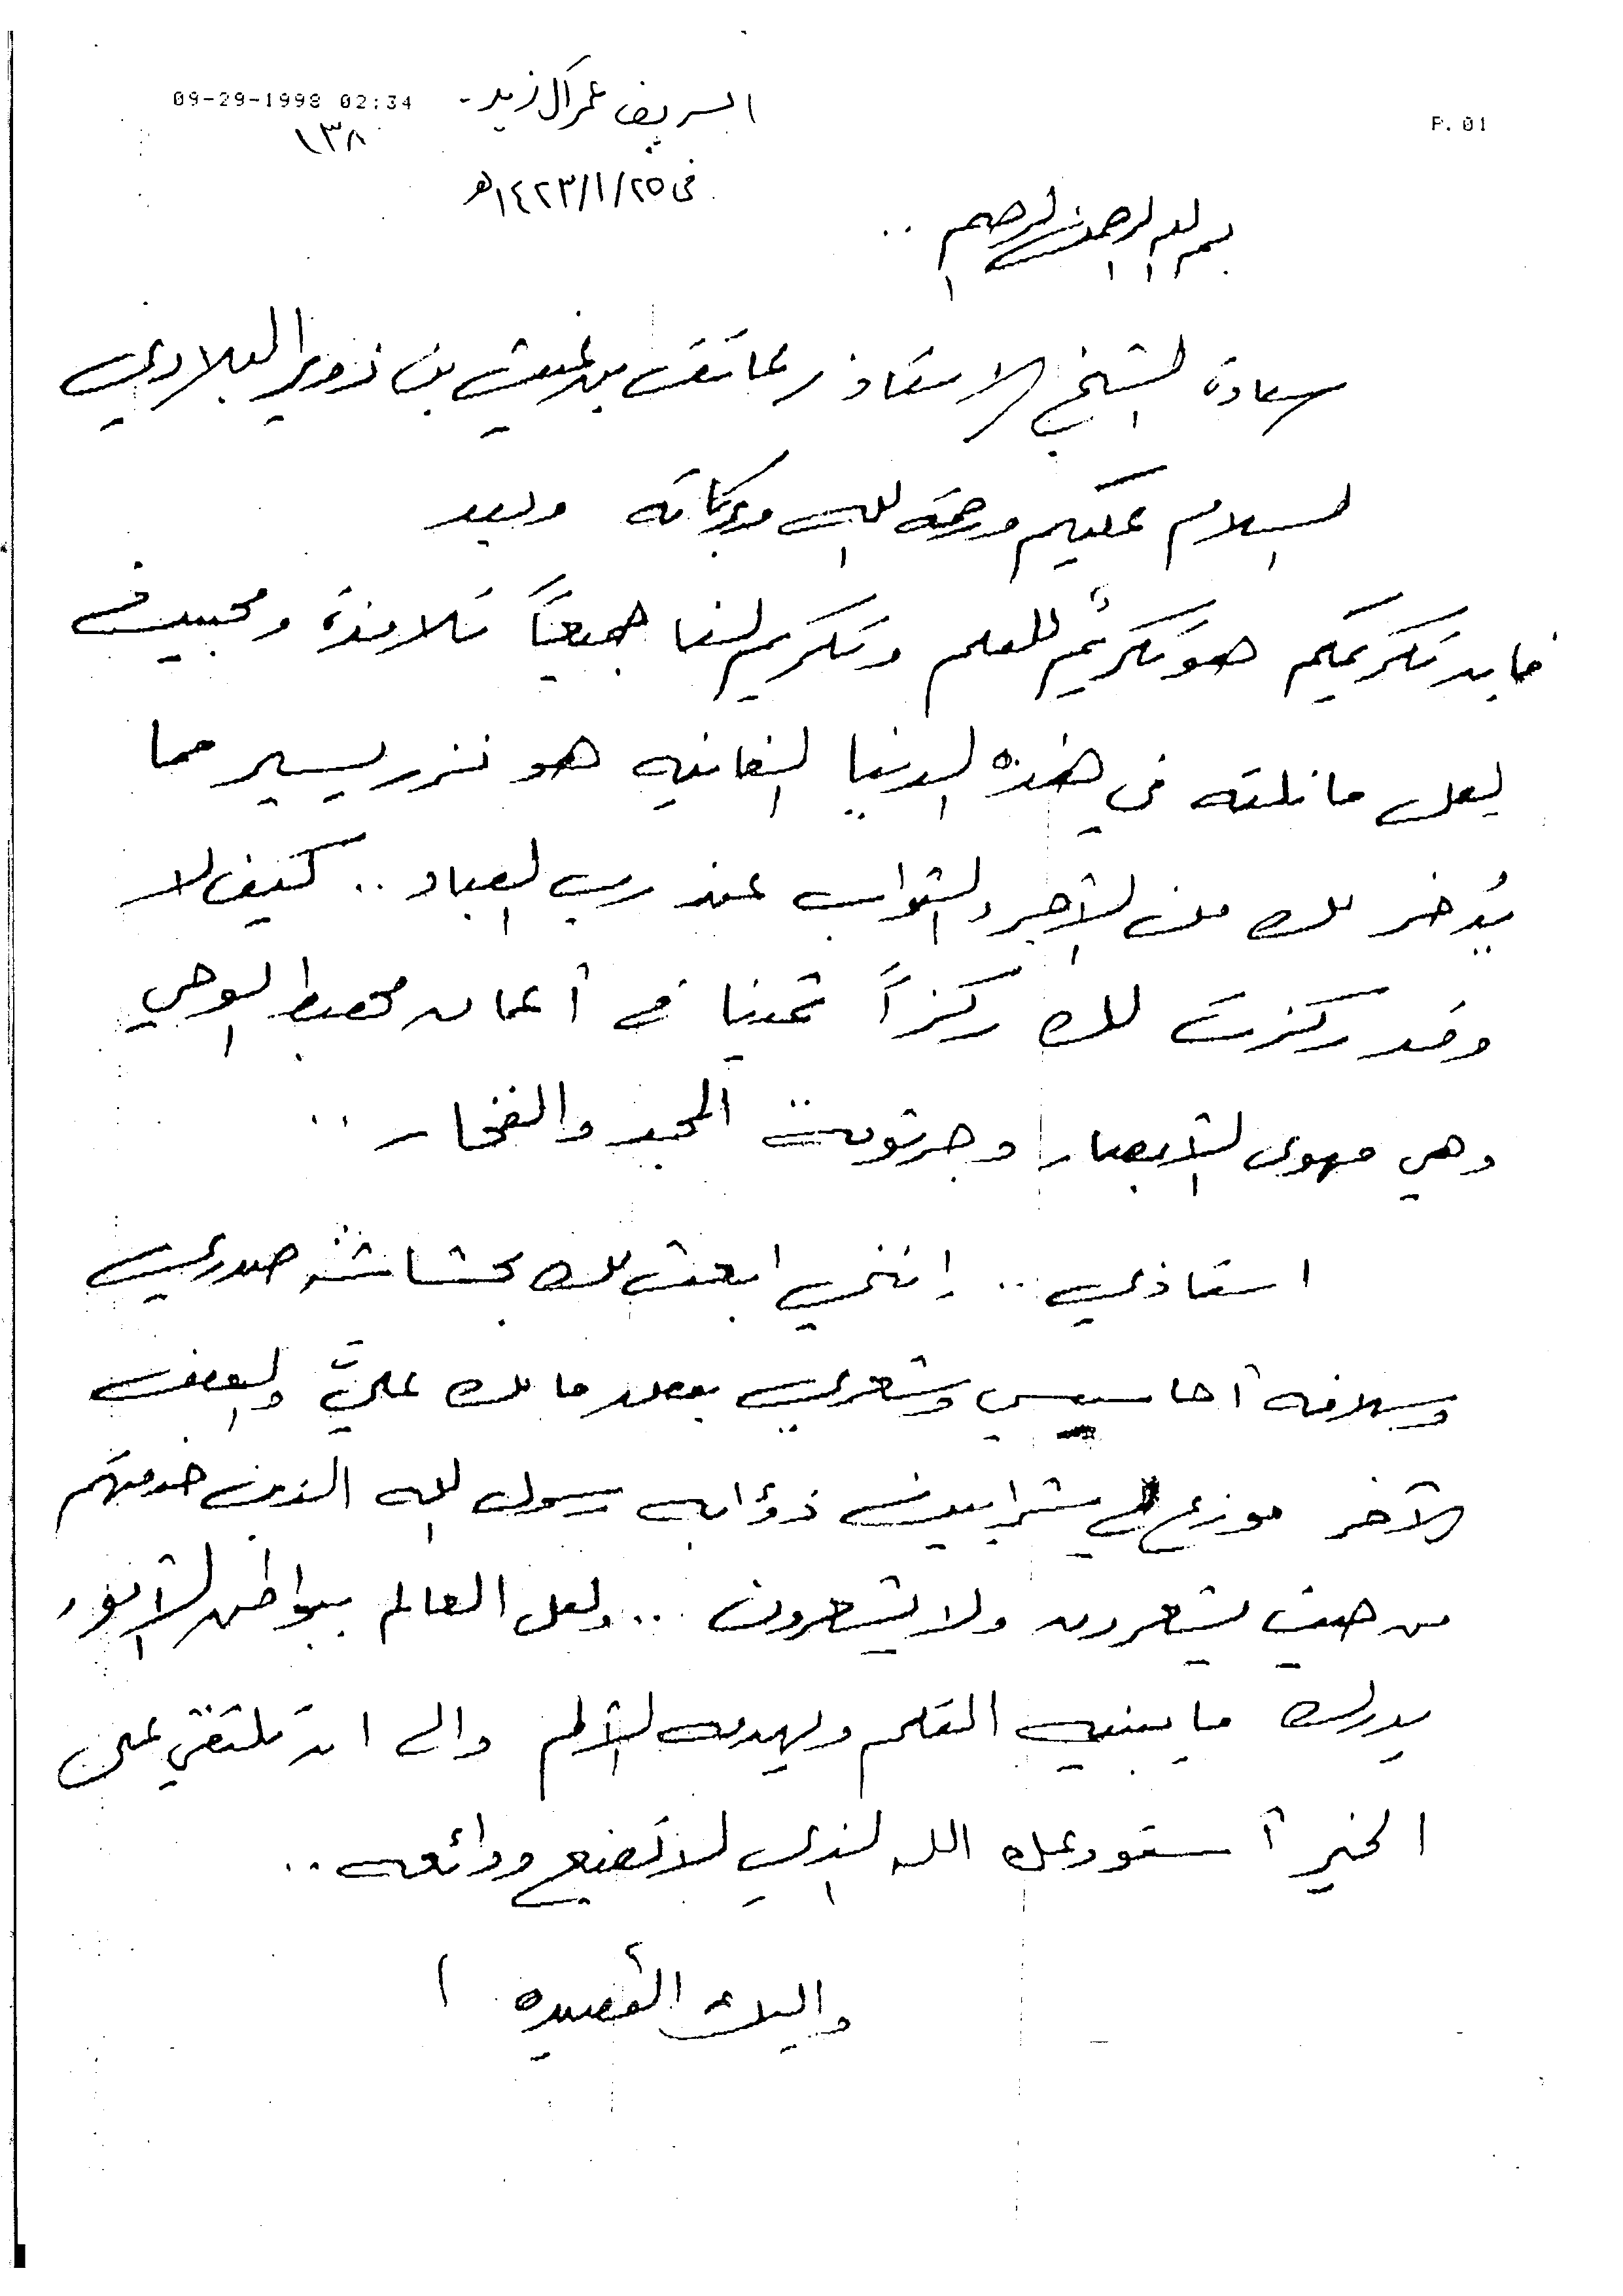 09-29-1998 02:34 الشريف عمر آل زيد - P.01
١٣٨
في ١٤٢٣/١/٢٥هـ
بسم الله الرحمن الرحيم ..
سعادة الشيخ الاستاذ / عاتق بن غيث بن زوير البلادي
السلام عليكم ورحمة الله وبركاته وبعد
فان تكريمكم هو تكريمٌ للعلم وتكريم لنا جميعاً تلامذة ومحبين
لعل ما نلته في هذه الدنيا الفانيه هو نزر يسير مما
يُدخر لك من الأجر والثواب عند رب العباد .. كيف لا
وقد ركزت لك ركزاً ثمينا في أعماق مهبط الوحي
وهي مهوى الأبصار وجرثومة المجد والفخار ..
استاذي .. إنني ابعث لك بحشاشة صدري
وسلافة أحاسيسي وشعري بعض ما لك عليَّ والبعض
الآخر موزع بين ذؤابه رسول الله الذين خدمتهم
من حيث يشعرون ولا يشعرون .. ولعل العالم ببواطن الأمور
يدرك ما يبنيه القلم ويهدمه الألم والى ان نلتقي على
الخير أستودعك الله الذي لا تضيع ودائعه ..
واليك القصيده